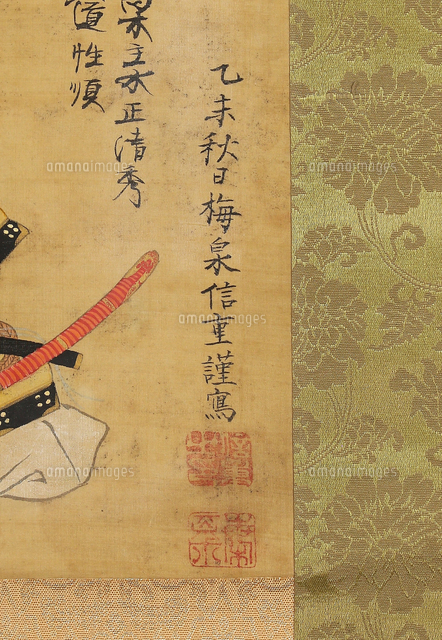 乙未秋日梅泉信重謹寫
主水正清秀
道性順
amanaimages
amanaimages
amanaimages
amanaimages
amanaimages